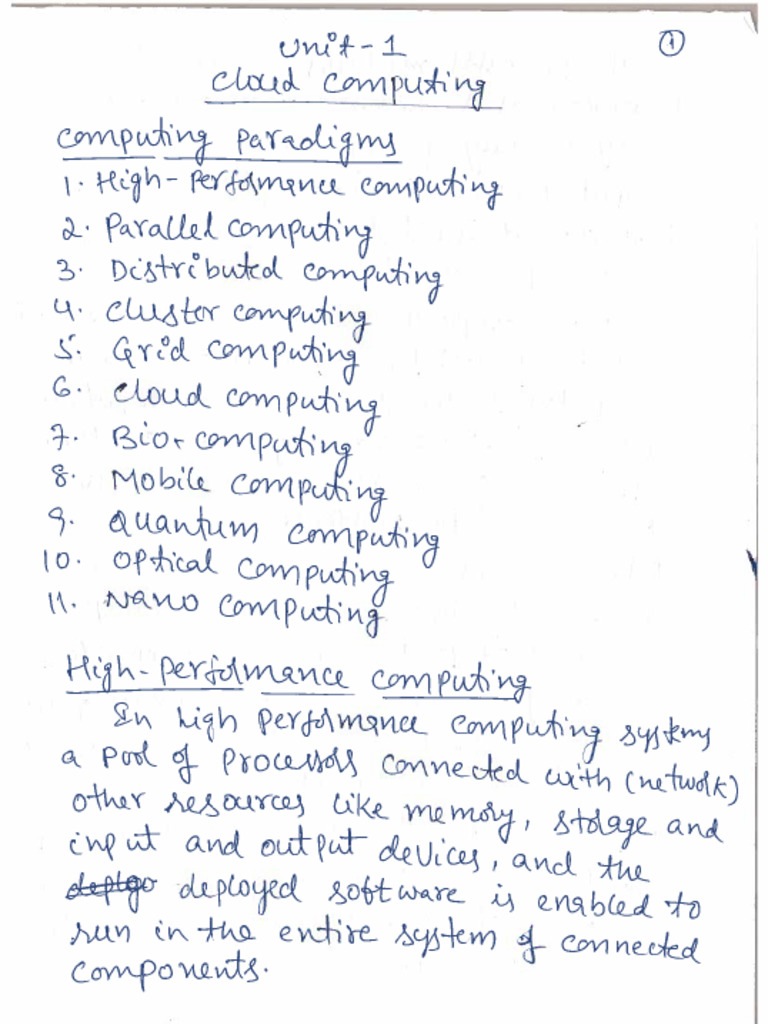 Unit-1
①
Cloud Computing
Computing Paradigms
1. High-Performance computing
2. Parallel computing
3. Distributed computing
4. Cluster computing
5. Grid computing
6. Cloud computing
7. Bio-computing
8. Mobile computing
9. Quantum computing
10. Optical computing
11. Nano computing
High-Performance computing
In high performance computing systems
a pool of processors connected with (network)
other resources like memory, storage and
input and output devices, and the
deployed software is enabled to
run in the entire system of connected
components.